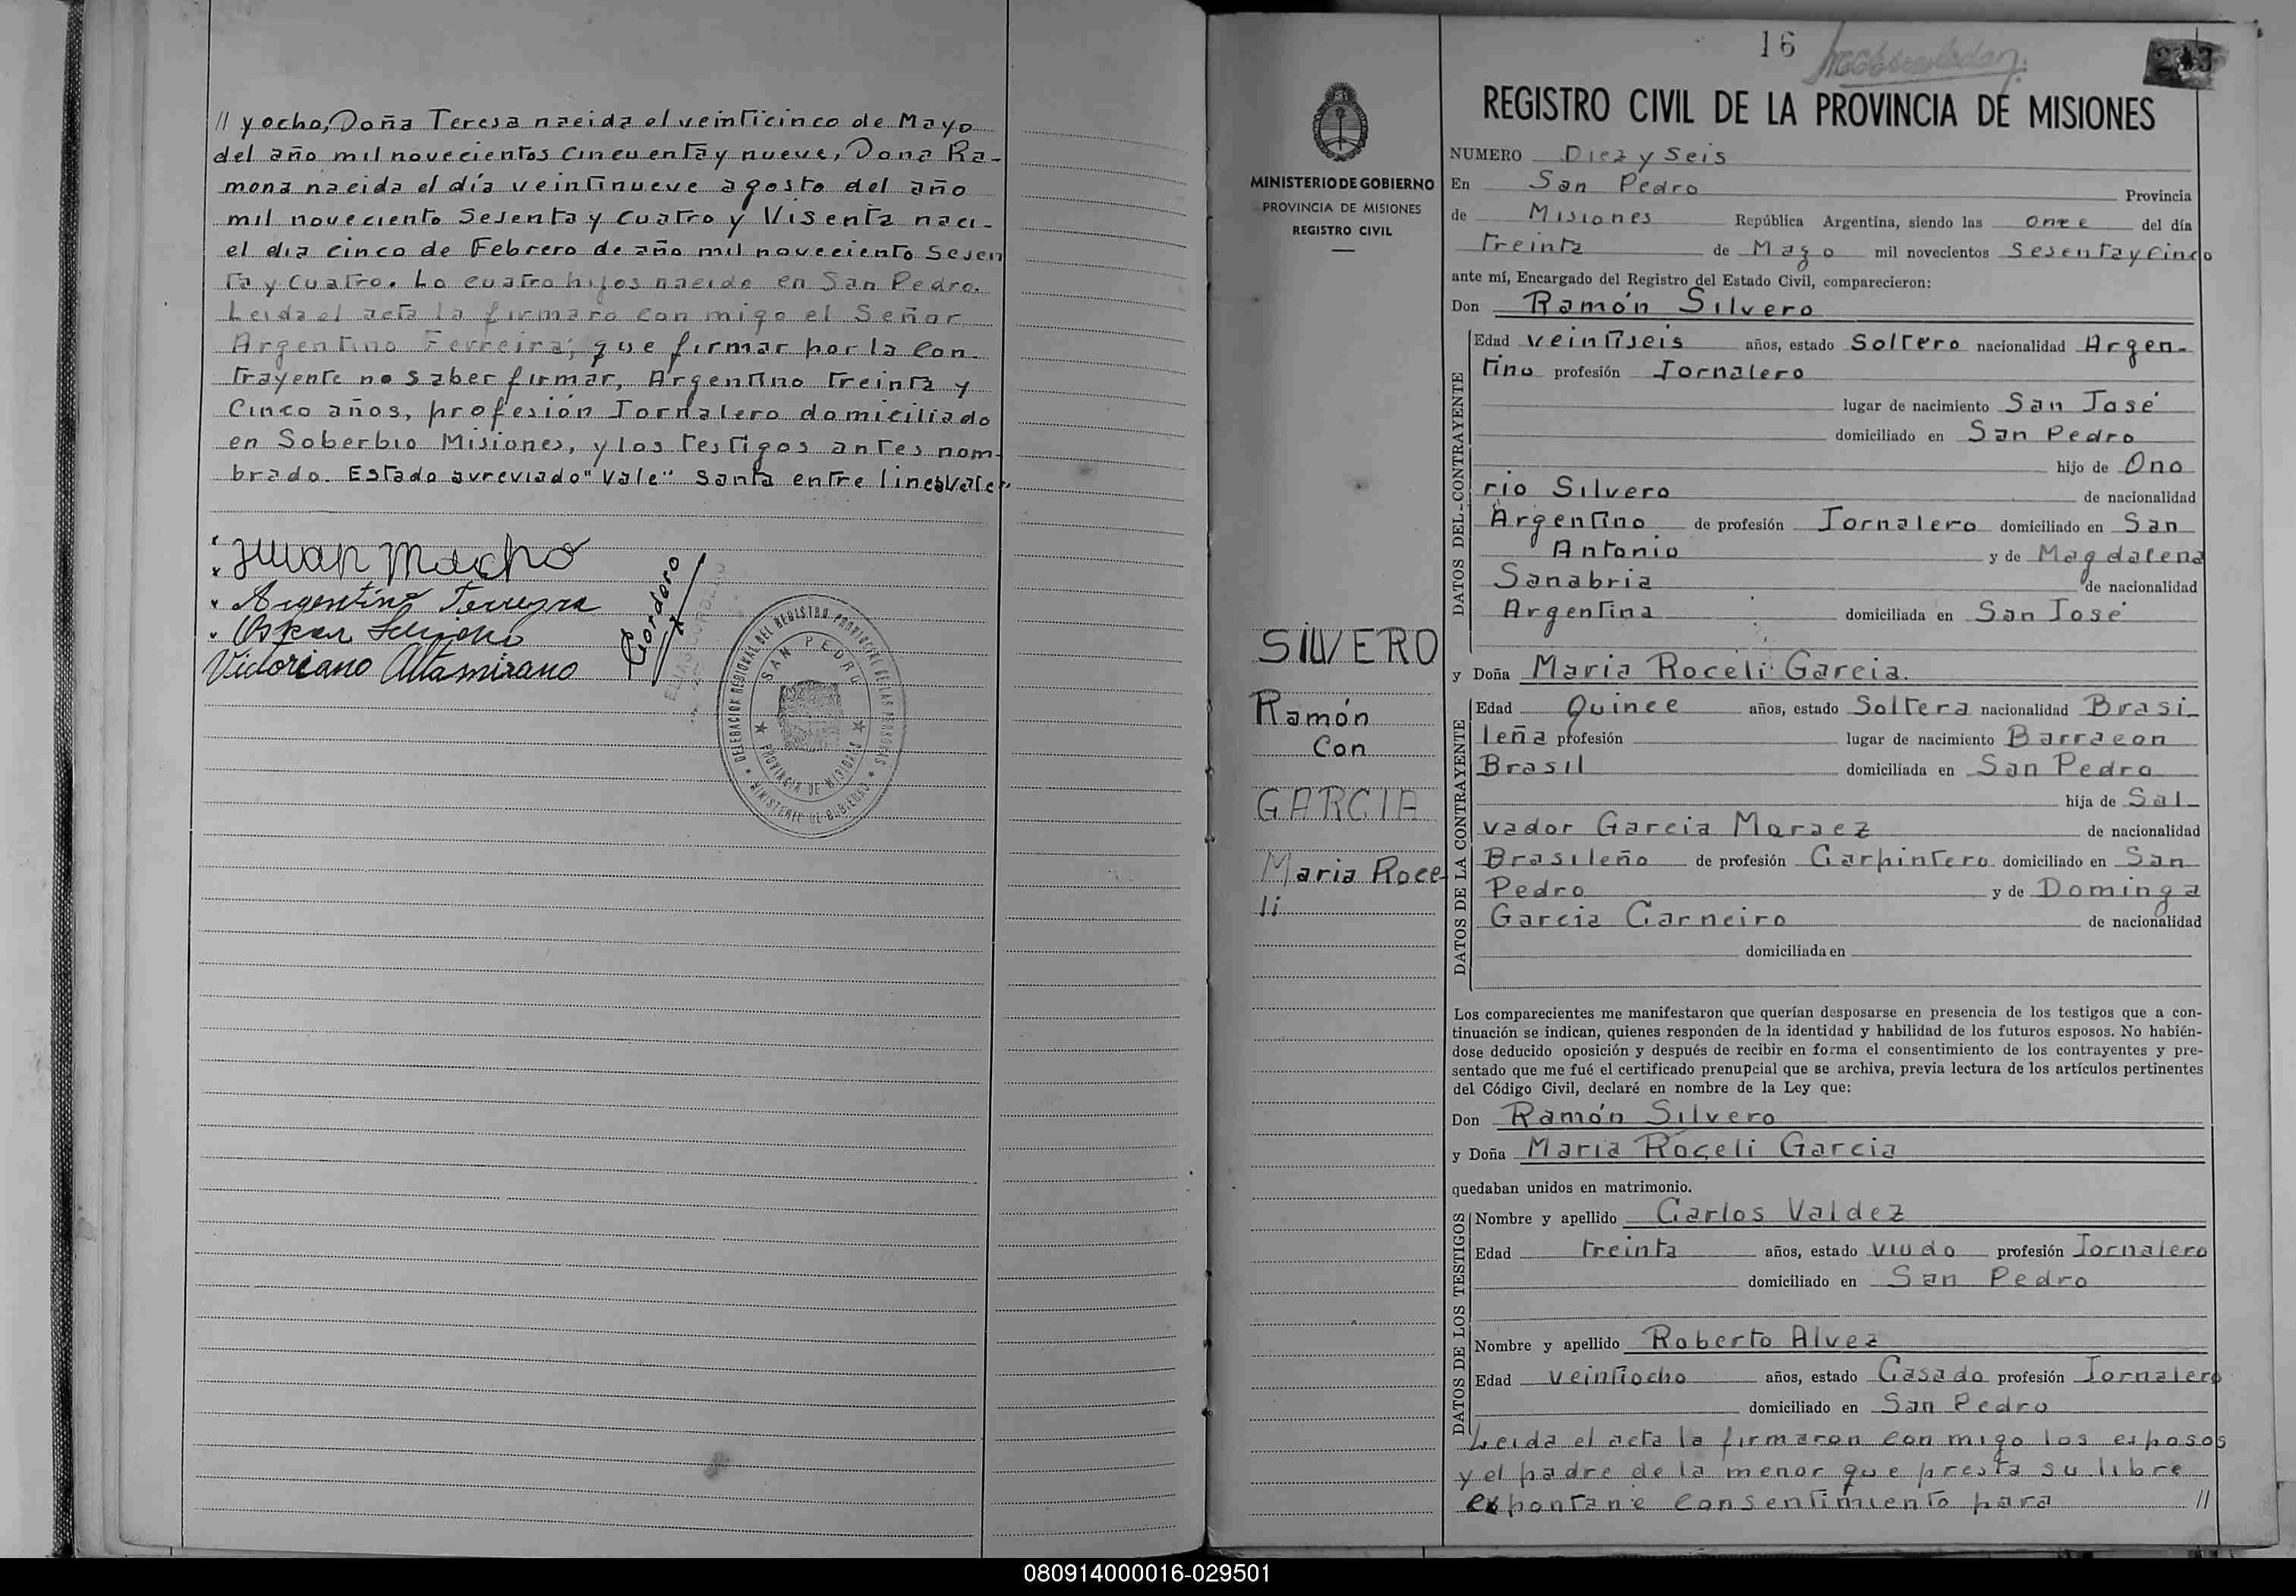 // y ocho, Doña Teresa nacida el veinticinco de Mayo
del año mil novecientos cincuenta y nueve, Dona Ra-
mona nacida el día veintinueve agosto del año
mil noveciento Sesenta y cuatro y Visenta naci-
el dia cinco de Febrero de año mil noveciento Sesen
ta y Cuatro. Lo cuatro hijos nacido en San Pedro.
Leida el acta la firmaro con migo el Señor
Argentino Ferreira, que firmar por la Con-
trayente no saber firmar, Argentino treinta y
Cinco años, profesión Jornalero domiciliado
en Soberbio Misiones, y los testigos antes nom-
brado. Estado avreviado "Vale" Santa entre lineas Vale
Juan Macho
Argentino Ferreyra
Oskar
Victoriano Altamirano
Cordero
DELEGACION REGIONAL DEL REGISTRO PROVINCIAL DE LAS PERSONAS
SAN PEDRO
PROVINCIA DE MISIONES
MINISTERIO DE GOBIERNO
16
243
MINISTERIO DE GOBIERNO
PROVINCIA DE MISIONES
REGISTRO CIVIL
SILVERO
Ramón
Con
GARCIA
Maria Roce-
li
REGISTRO CIVIL DE LA PROVINCIA DE MISIONES
NUMERO Diez y Seis
En San Pedro Provincia
de Misiones República Argentina, siendo las once del día
treinta de Mayo mil novecientos Sesenta y Cinco
ante mí, Encargado del Registro del Estado Civil, comparecieron:
Don Ramón Silvero
DATOS DEL CONTRAYENTE
Edad veintiseis años, estado Soltero nacionalidad Argen-
tino profesión Jornalero
lugar de nacimiento San José
domiciliado en San Pedro
hijo de Ono
rio Silvero de nacionalidad
Argentino de profesión Jornalero domiciliado en San
Antonio y de Magdalena
Sanabria de nacionalidad
Argentina domiciliada en San José
y Doña Maria Roceli Garcia.
DATOS DE LA CONTRAYENTE
Edad Quince años, estado Soltera nacionalidad Brasi-
leña profesión lugar de nacimiento Barracon
Brasil domiciliada en San Pedro
hija de Sal-
vador Garcia Moraez de nacionalidad
Brasileño de profesión Carpintero domiciliado en San
Pedro y de Dominga
Garcia Carneiro de nacionalidad
domiciliada en
Los comparecientes me manifestaron que querían desposarse en presencia de los testigos que a con-
tinuación se indican, quienes responden de la identidad y habilidad de los futuros esposos. No habién-
dose deducido oposición y después de recibir en forma el consentimiento de los contrayentes y pre-
sentado que me fué el certificado prenupcial que se archiva, previa lectura de los artículos pertinentes
del Código Civil, declaré en nombre de la Ley que:
Don Ramón Silvero
y Doña Maria Roceli Garcia
quedaban unidos en matrimonio.
DATOS DE LOS TESTIGOS
Nombre y apellido Carlos Valdez
Edad treinta años, estado viudo profesión Jornalero
domiciliado en San Pedro
Nombre y apellido Roberto Alvez
Edad veintiocho años, estado Casado profesión Jornalero
domiciliado en San Pedro
Leida el acta la firmaron con migo los esposos
y el padre de la menor que presta su libre
expontane consentimiento para //
080914000016-029501